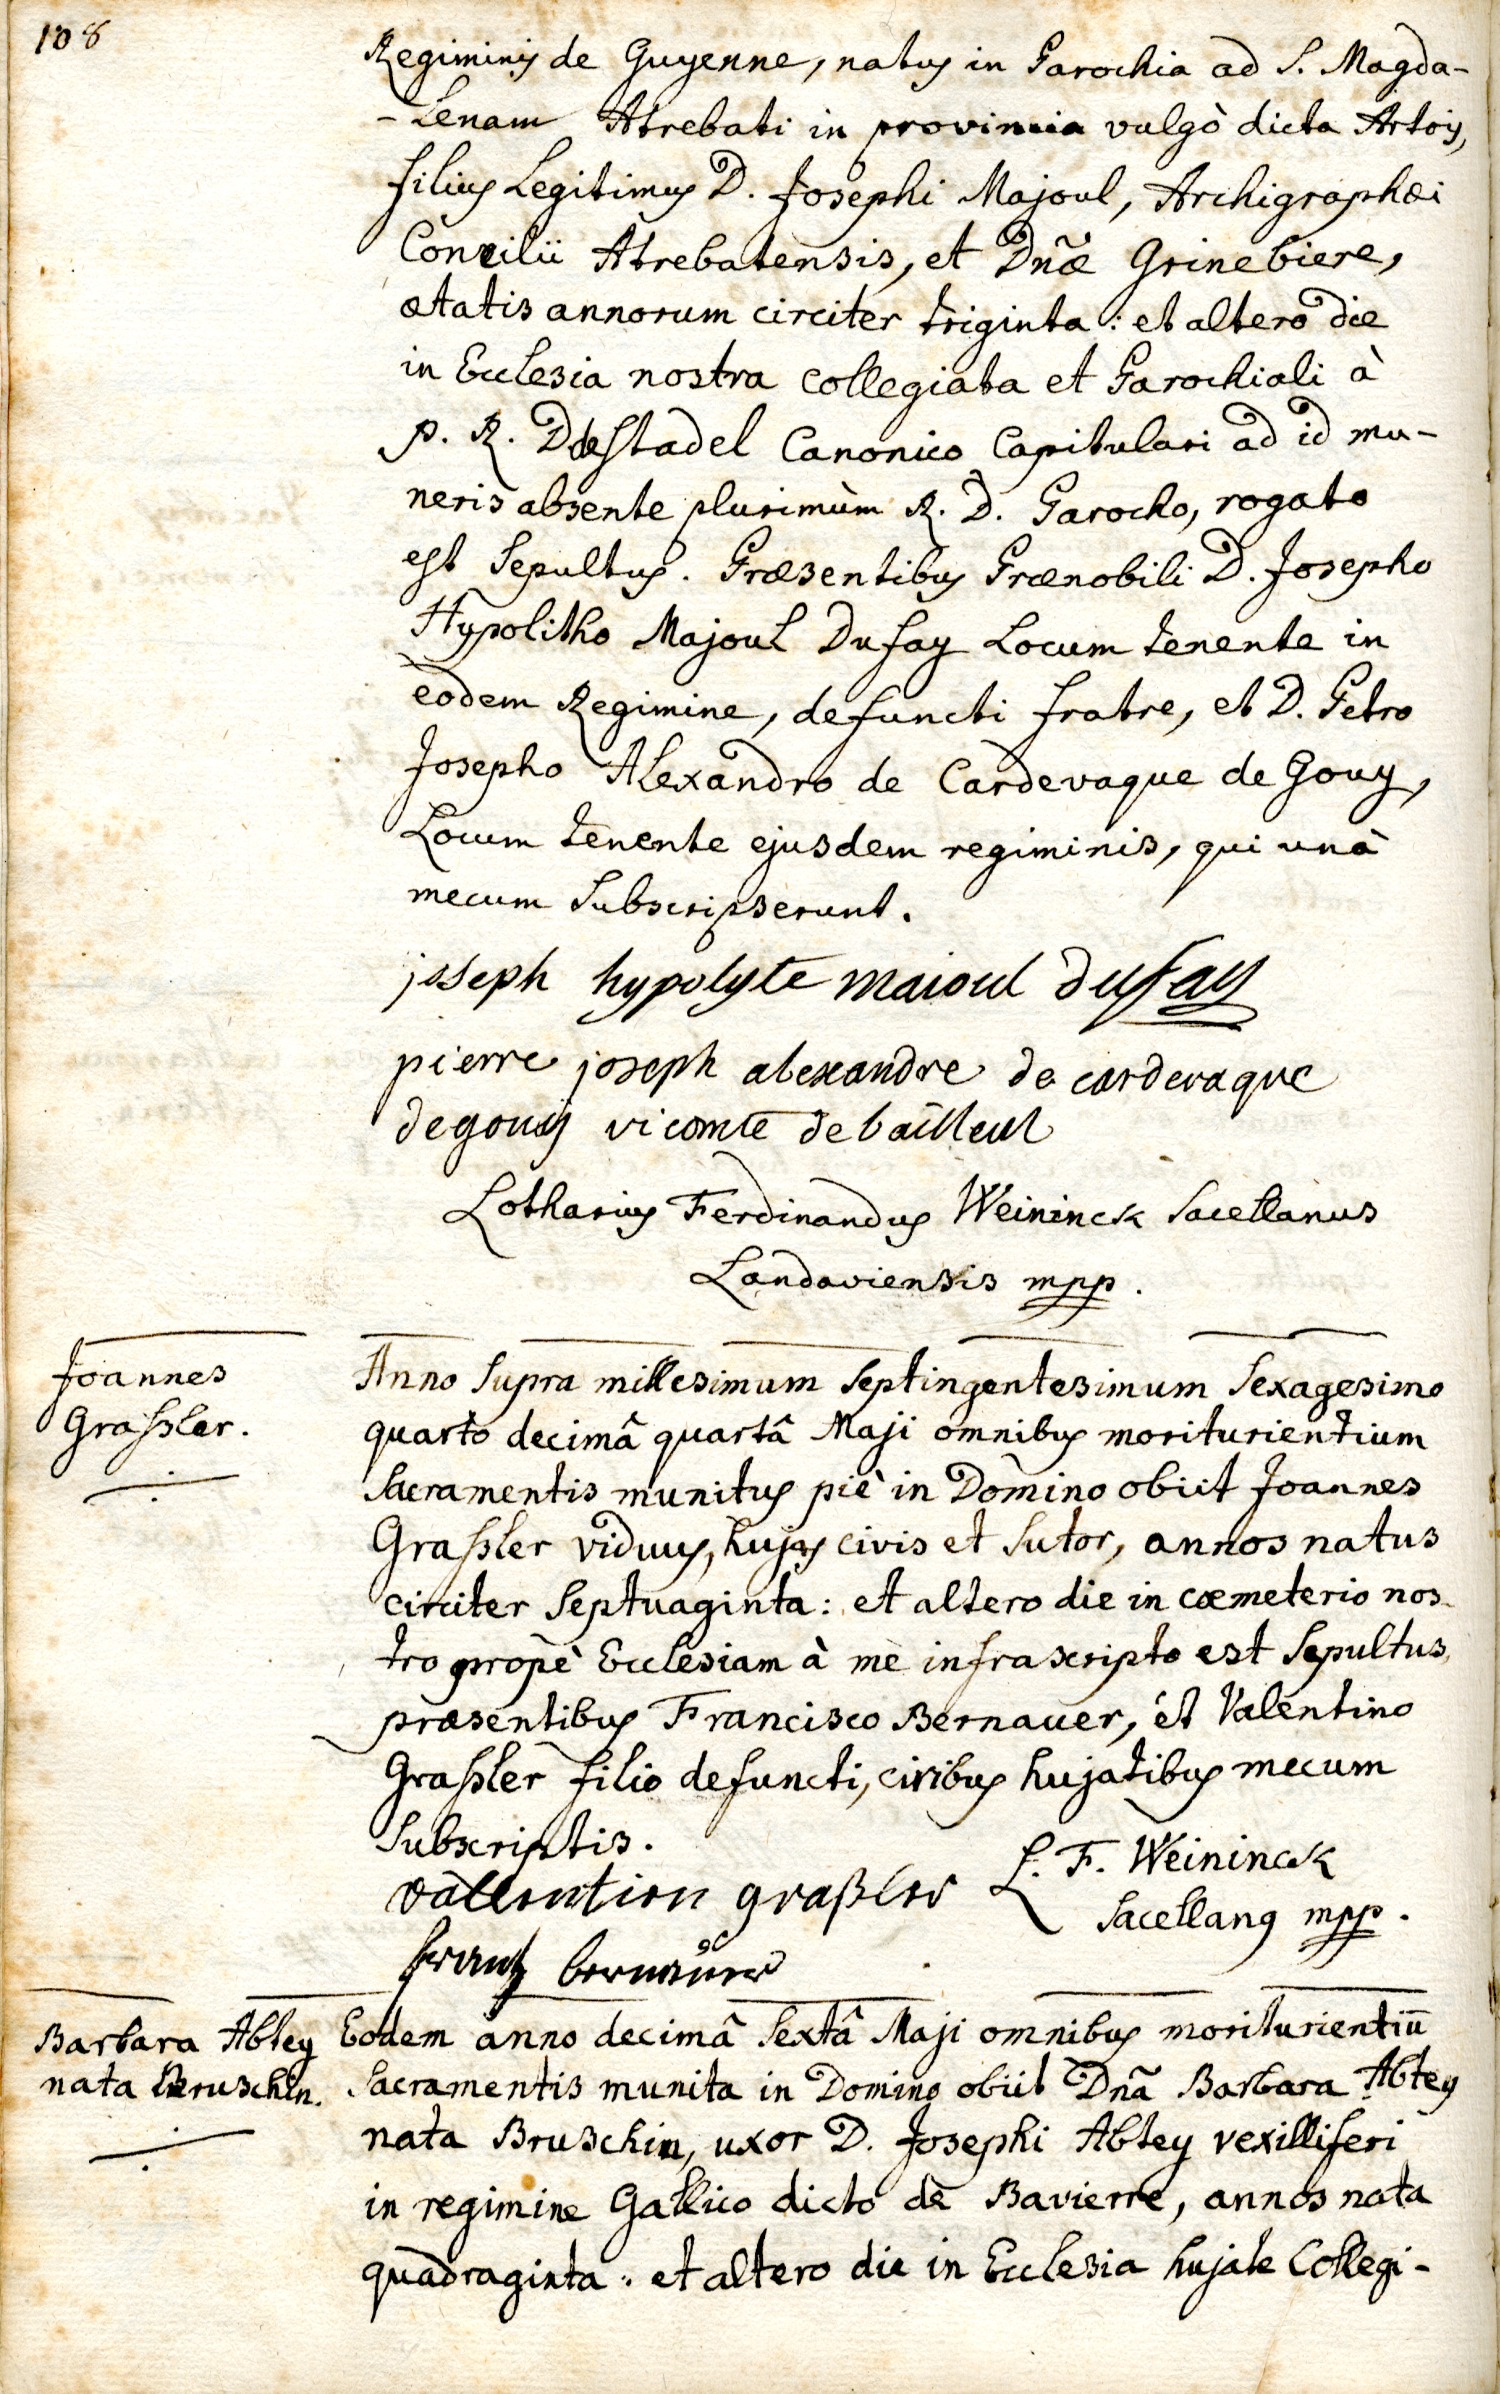 108
Regiminis de Guyenne, natus in Parochia ad S. Magda-
-lenam Atrebati in provincia vulgò dicta Artois,
filius Legitimus D. Josephi Majoul, Archigraphæi
Concilii Atrebatensis, et Dnæ Grinebiere,
ætatis annorum circiter triginta: et altero die
in Ecclesia nostra Collegiata et Parochiali à
p. R. D de Stadel Canonico Capitulari ad id mu-
neris absente plurimùm R. D. Parocho, rogato
est Sepultus. Præsentibus Prænobili D. Josepho
Hypolitho Majoul Dufay Locum tenente in
eodem Regimine, defuncti fratre, et D. Petro
Josepho Alexandro de Cardevaque de Gouy,
Locum tenente ejusdem regiminis, qui unà
mecum Subscripserunt.
joseph hypolyte maioul dufay
pierre joseph alexandre de cardevaque
degouy vicomte debailleul
Lotharius Ferdinandus Weininck Sacellanus
Landaviensis mpp.
Joannes
Graßler.
Anno Supra millesimum Septingentesimum Sexagesimo
quarto decimâ quartâ Maji omnibus moriturientium
Sacramentis munitus piè in Domino obiit Joannes
Graßler viduus, hujas civis et Sutor, annos natus
circiter Septuaginta: et altero die in cœmeterio nos-
tro propè Ecclesiam à me infrascripto est Sepultus,
præsentibus Francisco Bernauer, et Valentino
Graßler filio defuncti, civibus hujatibus mecum
Subscriptis.
L. F. Weininck
Sacellanus mpp.
vallentien graßler
frantz bernauer
Barbara Abtey
nata Bruschin.
Eodem anno decimâ Sextâ Maji omnibus moriturientiū
Sacramentis munita in Domino obiit Dnã Barbara Abtey
nata Bruschin, uxor D. Josephi Abtey vexilliferi
in regimine Gallico dicto de Bavierre, annos nata
quadraginta: et altero die in Ecclesia hujate Collegi-